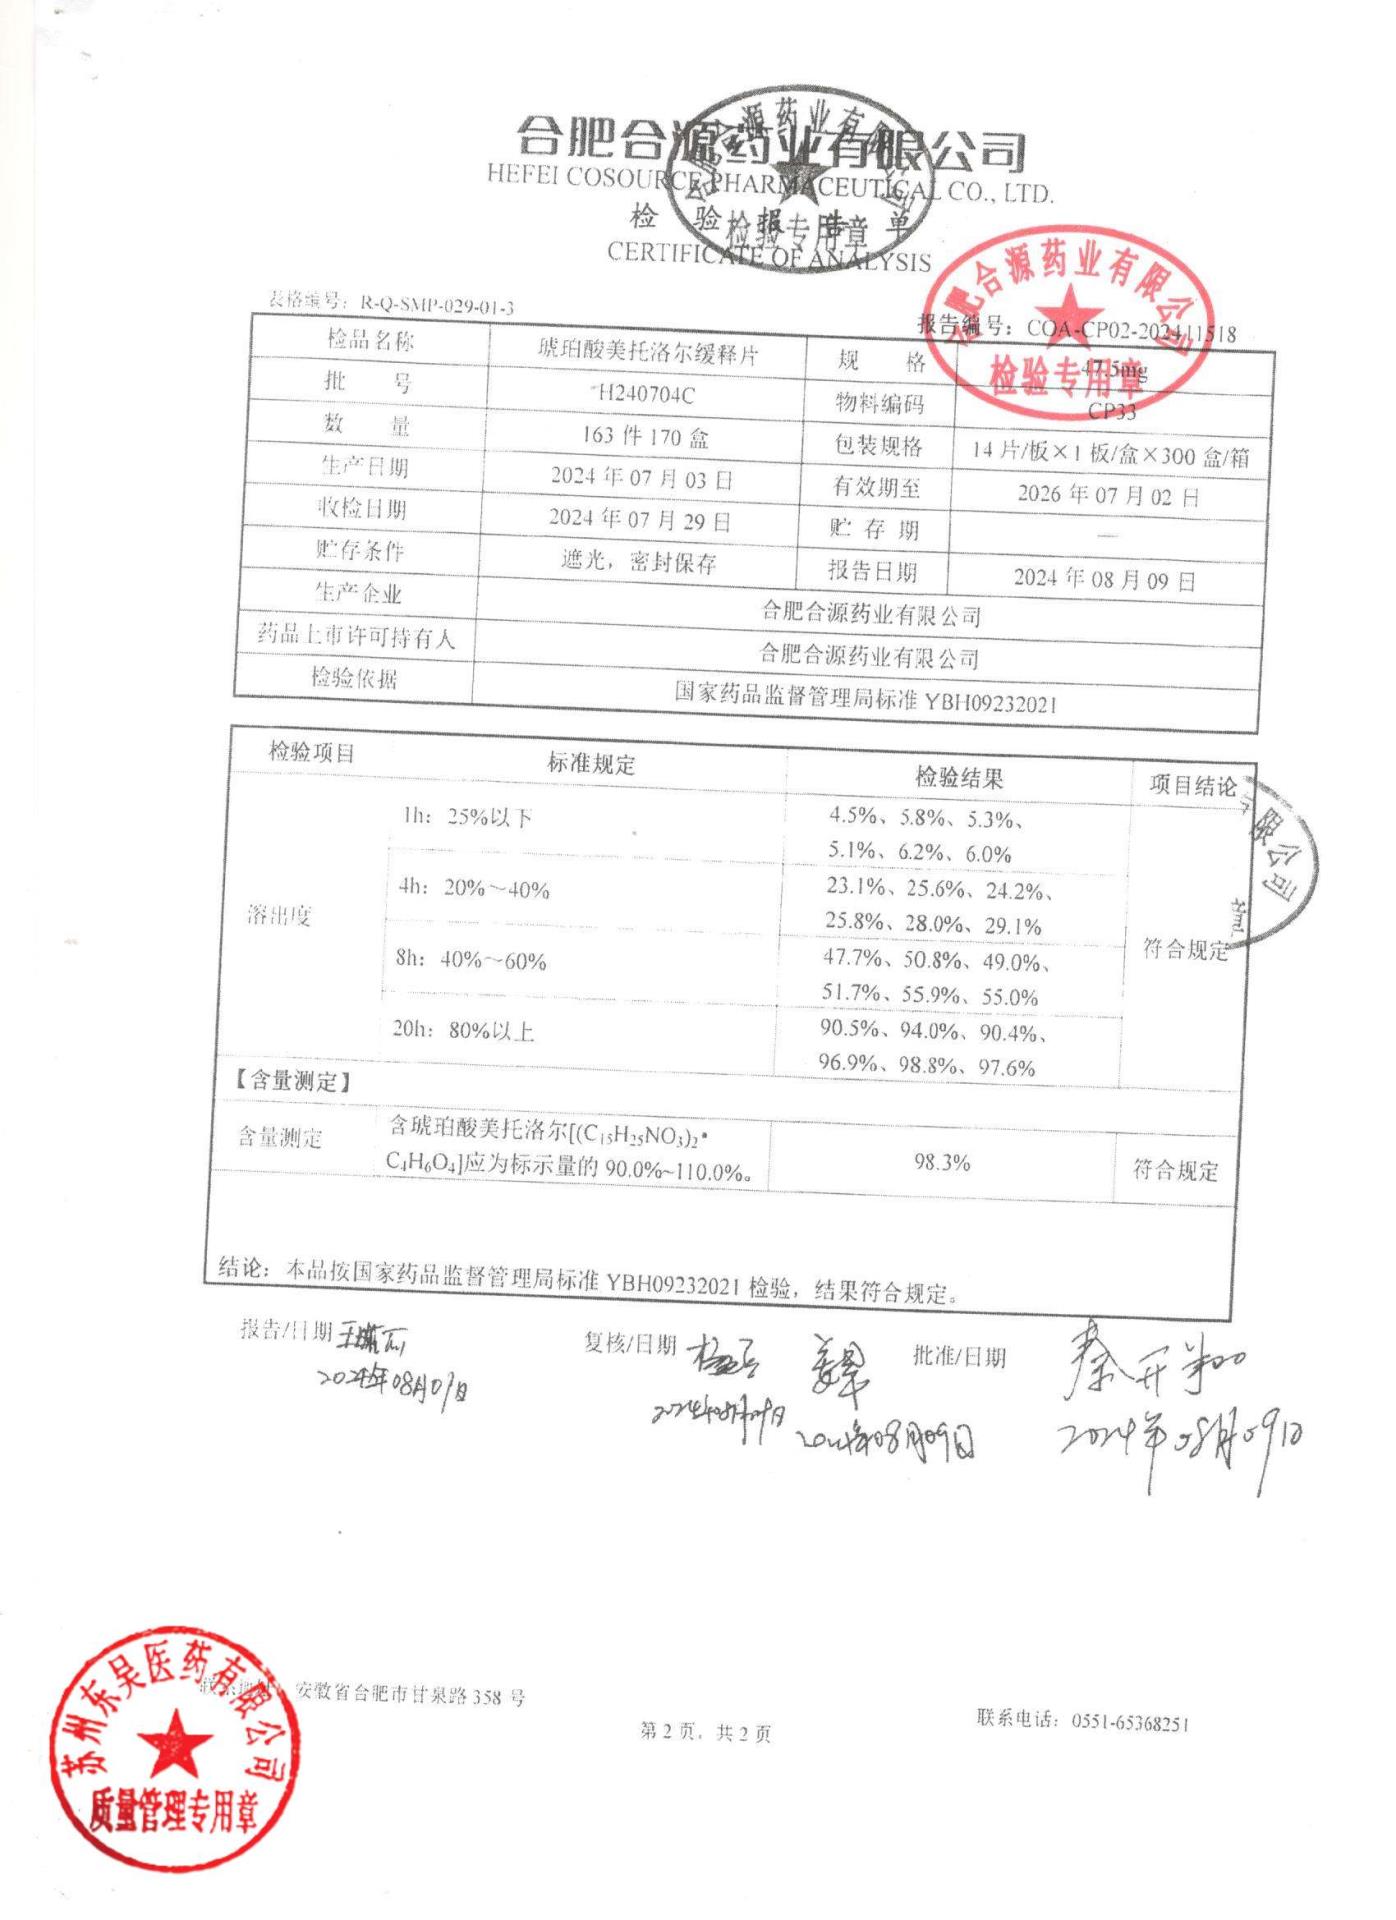 合肥合源药业有限公司
HEFEI COSOURCE PHARMACEUTICAL CO., LTD.
检验报告单
CERTIFICATE OF ANALYSIS
合肥合源药业有限公司
检验专用章
合肥合源药业有限公司
检验专用章
表格编号：R-Q-SMP-029-01-3
报告编号：COA-CP02-202411518
检品名称 琥珀酸美托洛尔缓释片 规格 47.5mg
批号 H240704C 物料编码 CP33
数量 163 件 170 盒 包装规格 14 片/板×1 板/盒×300 盒/箱
生产日期 2024 年 07 月 03 日 有效期至 2026 年 07 月 02 日
收检日期 2024 年 07 月 29 日 贮存期 —
贮存条件 遮光，密封保存 报告日期 2024 年 08 月 09 日
生产企业 合肥合源药业有限公司
药品上市许可持有人 合肥合源药业有限公司
检验依据 国家药品监督管理局标准 YBH09232021
检验项目 标准规定 检验结果 项目结论
溶出度
1h：25%以下 4.5%、5.8%、5.3%、
5.1%、6.2%、6.0%
4h：20%～40% 23.1%、25.6%、24.2%、
25.8%、28.0%、29.1%
8h：40%～60% 47.7%、50.8%、49.0%、
51.7%、55.9%、55.0%
20h：80%以上 90.5%、94.0%、90.4%、
96.9%、98.8%、97.6%
符合规定
限公司
章
【含量测定】
含量测定 含琥珀酸美托洛尔[(C₁₅H₂₅NO₃)₂•
C₄H₆O₄]应为标示量的 90.0%~110.0%。 98.3% 符合规定
结论：本品按国家药品监督管理局标准 YBH09232021 检验，结果符合规定。
报告/日期 复核/日期 批准/日期
2024年08月09日 2024年08月09日 2024年08月09日 2024年08月09日
联系地址：安徽省合肥市甘泉路 358 号
联系电话：0551-65368251
第 2 页，共 2 页
苏州东吴医药有限公司
质量管理专用章